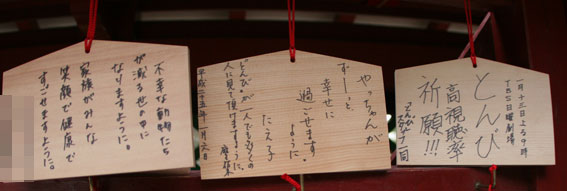 一月十三日よる9時
TBS日曜劇場
とんび
高視聴率
祈願!!!
とんび
スタッフ一同
やっちゃんが
ずーっと、
幸せに
過ごせます
ように。
たえ子
とんびが一人でも多くの
人に見て頂けますように。
平成二十五年一月六日
不幸な動物たち
が減る世の中に
なりますように。
家族がみんな
笑顔で健康で
すごせますように。